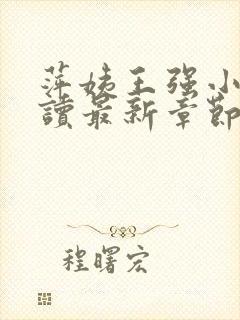 萍姨王强小
讀最新章節
程曙宏